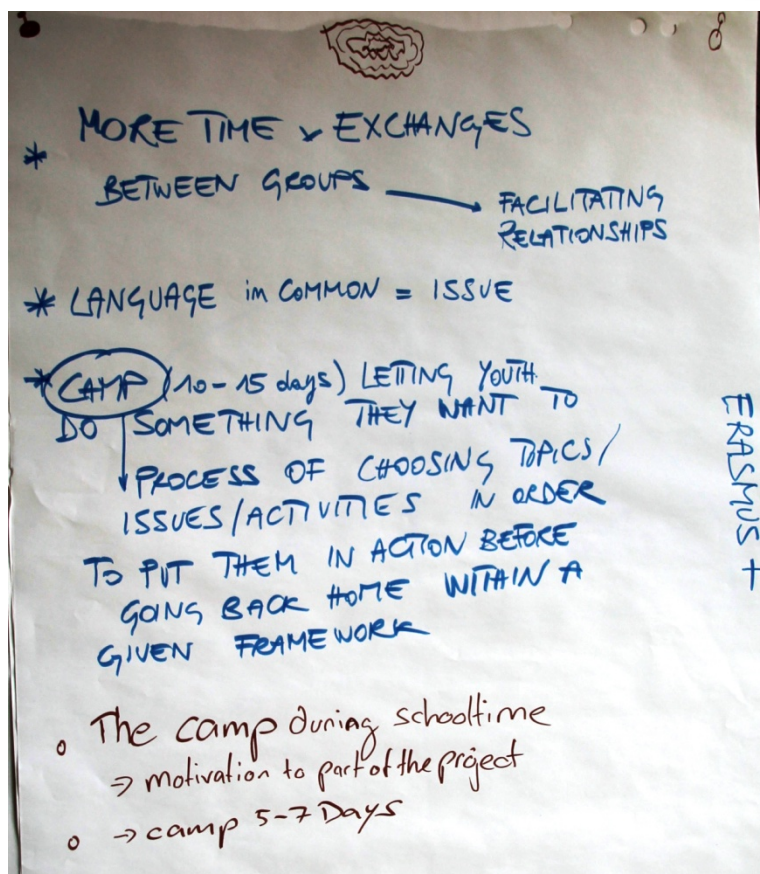 MORE TIME & EXCHANGES
* BETWEEN GROUPS → FACILITATING
RELATIONSHIPS
* LANGUAGE in COMMON = ISSUE
* CAMP (10-15 days) LETTING YOUTH
DO SOMETHING THEY WANT TO
↓ PROCESS OF CHOOSING TOPICS/
ISSUES/ACTIVITIES IN ORDER
TO PUT THEM IN ACTION BEFORE
GOING BACK HOME WITHIN A
GIVEN FRAMEWORK
ERASMUS +
o The camp during schooltime
→ motivation to part of the project
o → camp 5-7 Days